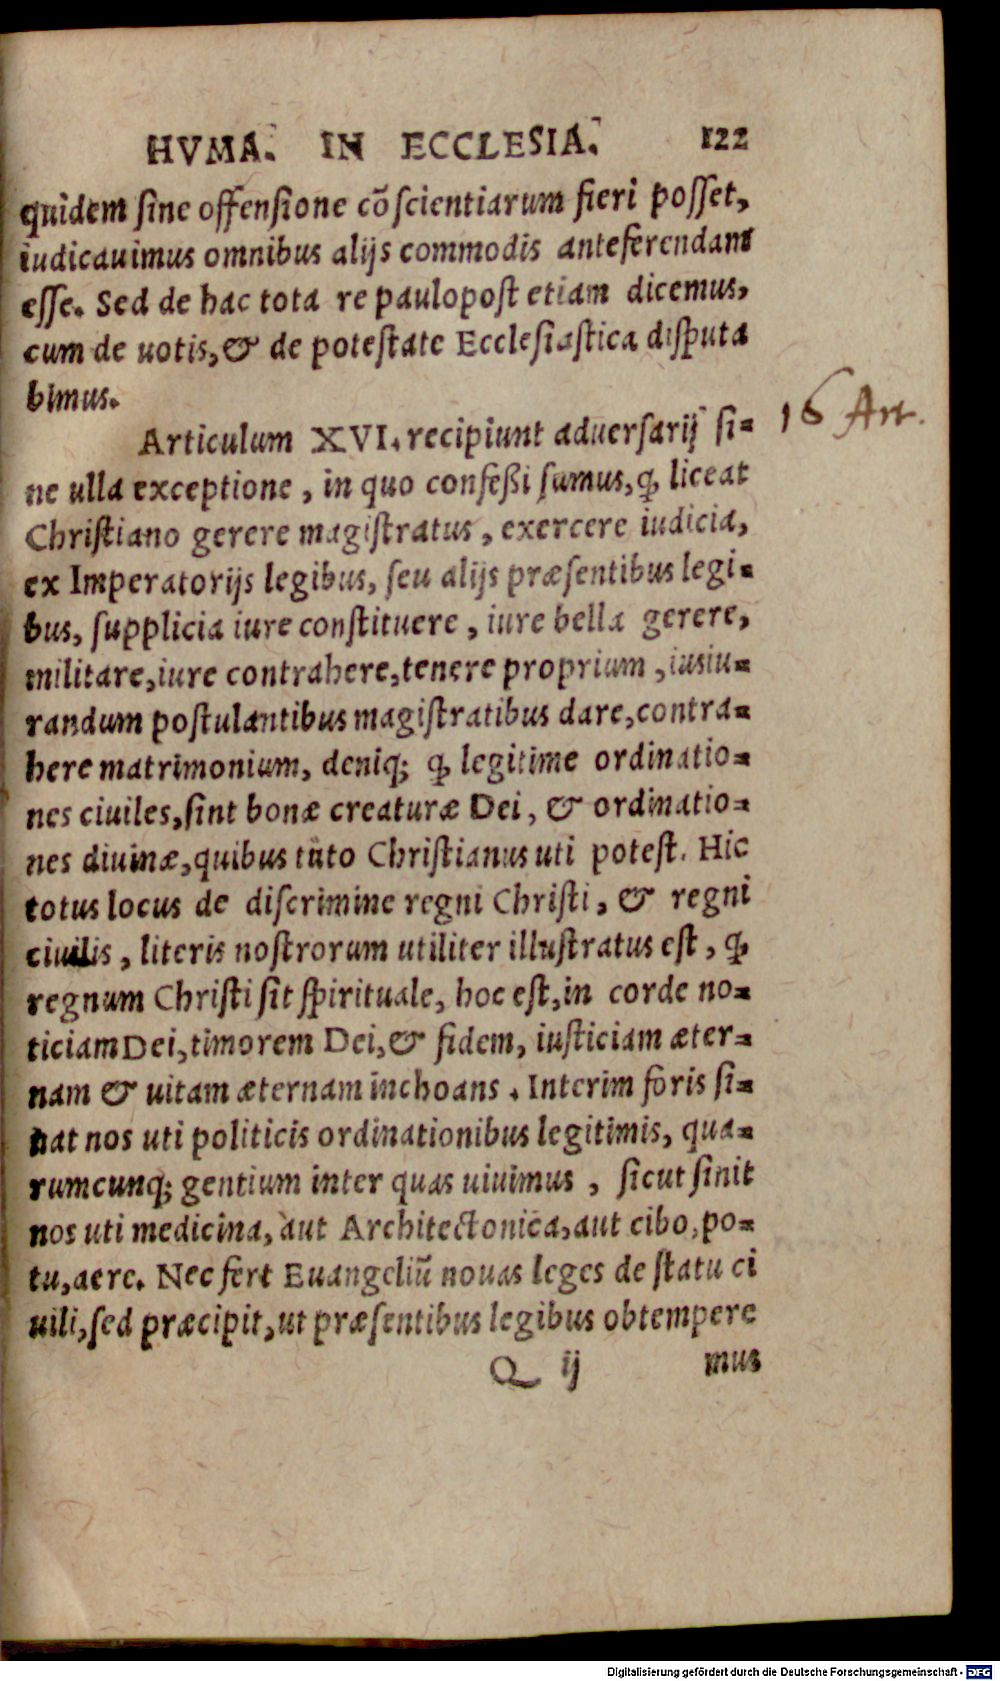 HVMA. IN ECCLESIA. 122
quidem ſine offenſione cõſcientiarum fieri poſſet,
iudicauimus omnibus alijs commodis anteferendam
eſſe. Sed de hac tota re paulopoſt etiam dicemus,
cum de uotis, & de poteſtate Eccleſiaſtica diſputa
bimus.
Articulum XVI. recipiunt aduerſarij ſi-
ne ulla exceptione, in quo confeßi ſumus, ꝙ liceat
Chriſtiano gerere magiſtratus, exercere iudicia,
ex Imperatorijs legibus, ſeu alijs præſentibus legi-
bus, ſupplicia iure conſtituere, iure bella gerere,
militare, iure contrahere, tenere proprium, iusiu-
randum poſtulantibus magiſtratibus dare, contra-
here matrimonium, deniq; ꝙ legitime ordinatio-
nes ciuiles, ſint bonæ creaturæ Dei, & ordinatio-
nes diuinæ, quibus tuto Chriſtianus uti poteſt. Hic
totus locus de diſcrimine regni Chriſti, & regni
ciuilis, literis noſtrorum utiliter illuſtratus eſt, ꝙ
regnum Chriſti ſit ſpirituale, hoc eſt, in corde no-
ticiam Dei, timorem Dei, & fidem, iuſticiam æter-
nam & uitam æternam inchoans. Interim foris ſi-
nat nos uti politicis ordinationibus legitimis, qua-
rumcunq; gentium inter quas uiuimus, ſicut ſinit
nos uti medicina, aut Architectonica, aut cibo, po-
tu, aere. Nec fert Euangeliũ nouas leges de ſtatu ci
uili, ſed præcipit, ut præſentibus legibus obtempere
Q ij mus
16 Art.
Digitalisierung gefördert durch die Deutsche Forschungsgemeinschaft - DFG